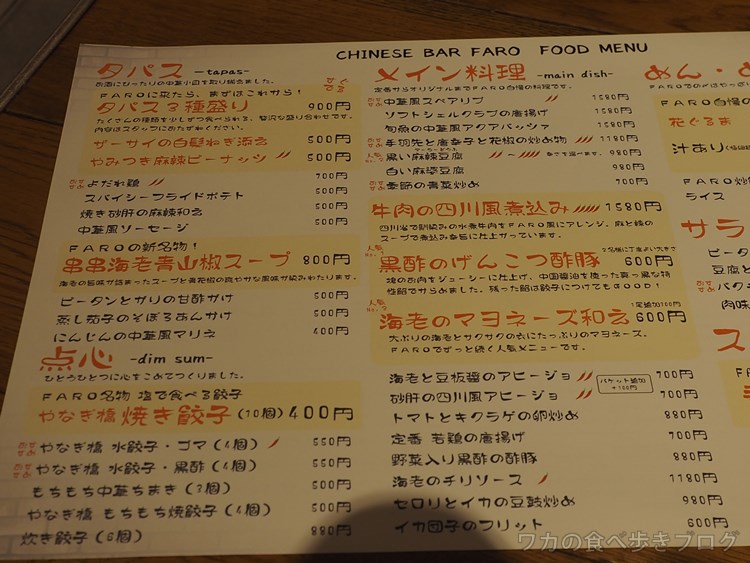 CHINESE BAR FARO FOOD MENU
タパス -tapas-
お酒にぴったりの中華小皿を取り揃えました。
FAROに来たら、まずはこれから!
タパス3種盛り 900円
たくさんの種類を少しずつ食べられる、贅沢な盛り合わせです。
内容はスタッフにおたずねください。
ザーサイの白髪ねぎ添え 500円
やみつき麻辣ピーナッツ 500円
おすすめ よだれ鶏 700円
スパイシーフライドポテト 500円
焼き砂肝の麻辣和え 500円
中華風ソーセージ 500円
FAROの新名物!
串串海老青山椒スープ 800円
海老の旨味が詰まったスープと青花椒の爽やかな風味が織りあいます。
ピータンとガリの甘酢がけ 500円
蒸し茄子のそぼろあんかけ 500円
にんじんの中華風マリネ 400円
点心 -dim sum-
ひとつひとつに心をこめてつくりました。
FARO名物 塩で食べる餃子
やなぎ橋 焼き餃子 (10個) 400円
おすすめ やなぎ橋 水餃子・ゴマ (4個) 550円
おすすめ やなぎ橋 水餃子・黒酢 (4個) 550円
もちもち中華ちまき (2個) 500円
やなぎ橋 もちもち焼餃子 (4個) 500円
炊き餃子 (6個) 880円
メイン料理 -main dish-
定番からオリジナルまでFARO自慢の料理です。
おすすめ 中華風スペアリブ 1580円
ソフトシェルクラブの唐揚げ 1580円
旬魚の中華風アクアパッツァ 1580円
おすすめ 手羽先と唐辛子と花椒の炒め物 1180円
黒い麻辣豆腐 980円
白い麻婆豆腐 980円
おすすめ 季節の青菜炒め 980円
牛肉の四川風煮込み 1580円
四川省で馴染みの水煮牛肉をFARO風にアレンジ。麻と辣の
スープで煮込み辛旨に仕上がっています。
黒酢のげんこつ酢豚 600円
塊のお肉をジューシーに仕上げ、中国醤油を使った真っ黒な特
性餡でからめました。残った餡は餃子につけてもGOOD!
1尾追加300円
海老のマヨネーズ和え 600円
大ぶりの海老とサクサクの衣にたっぷりのマヨネーズ。
FAROでずっと続く人気メニューです。
海老と豆板醤のアヒージョ 700円
バケット追加 +100円
砂肝の四川風アヒージョ 700円
トマトとキクラゲの卵炒め 880円
定番 若鶏の唐揚げ 700円
野菜入り黒酢の酢豚 880円
海老のチリソース 1180円
セロリとイカの豆鼓炒め 980円
イカ団子のフリット 600円
めん・
FARO自慢の
花ぐるま
汁あり
FARO
ライス
サラ
ピータ
豆腐と
パク
肉味
ス
ワカの食べ歩きブログ